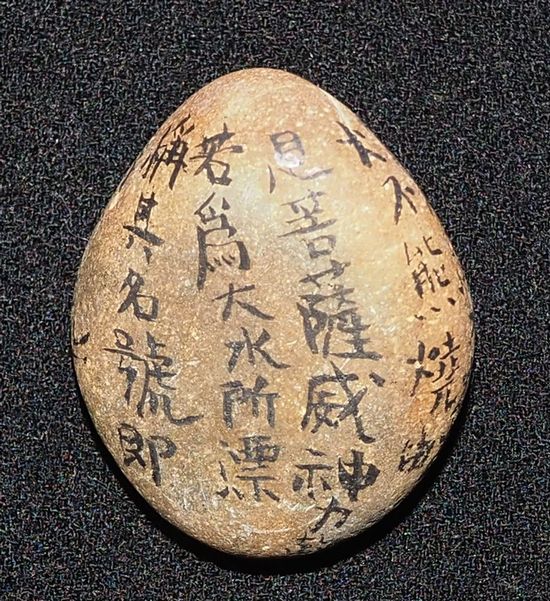 火不能燒
是菩薩威神力
若爲大水所漂
稱其名號即